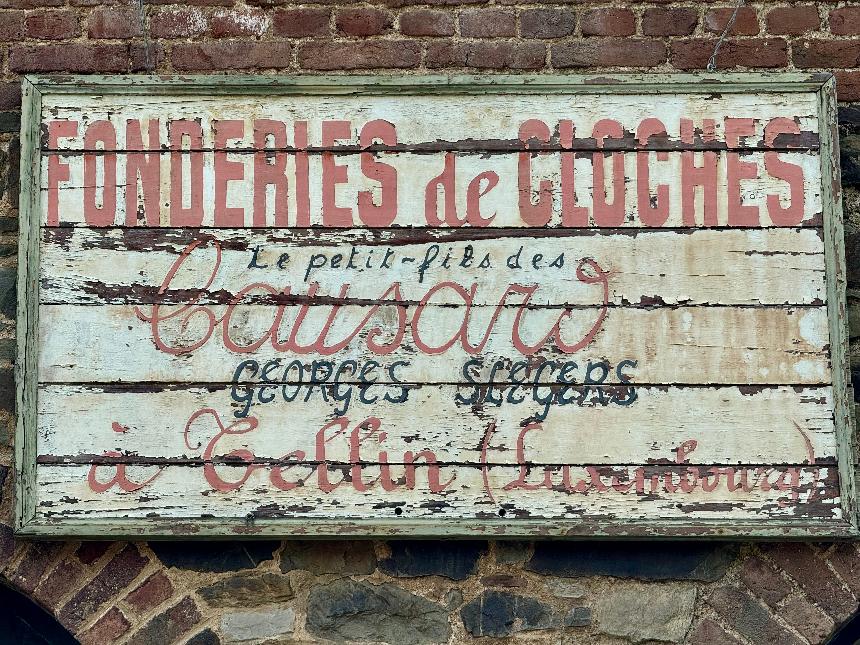 FONDERIES de CLOCHES
Le petit-fils des
Causard
GEORGES SLEGERS
à Tellin (Luxembourg)